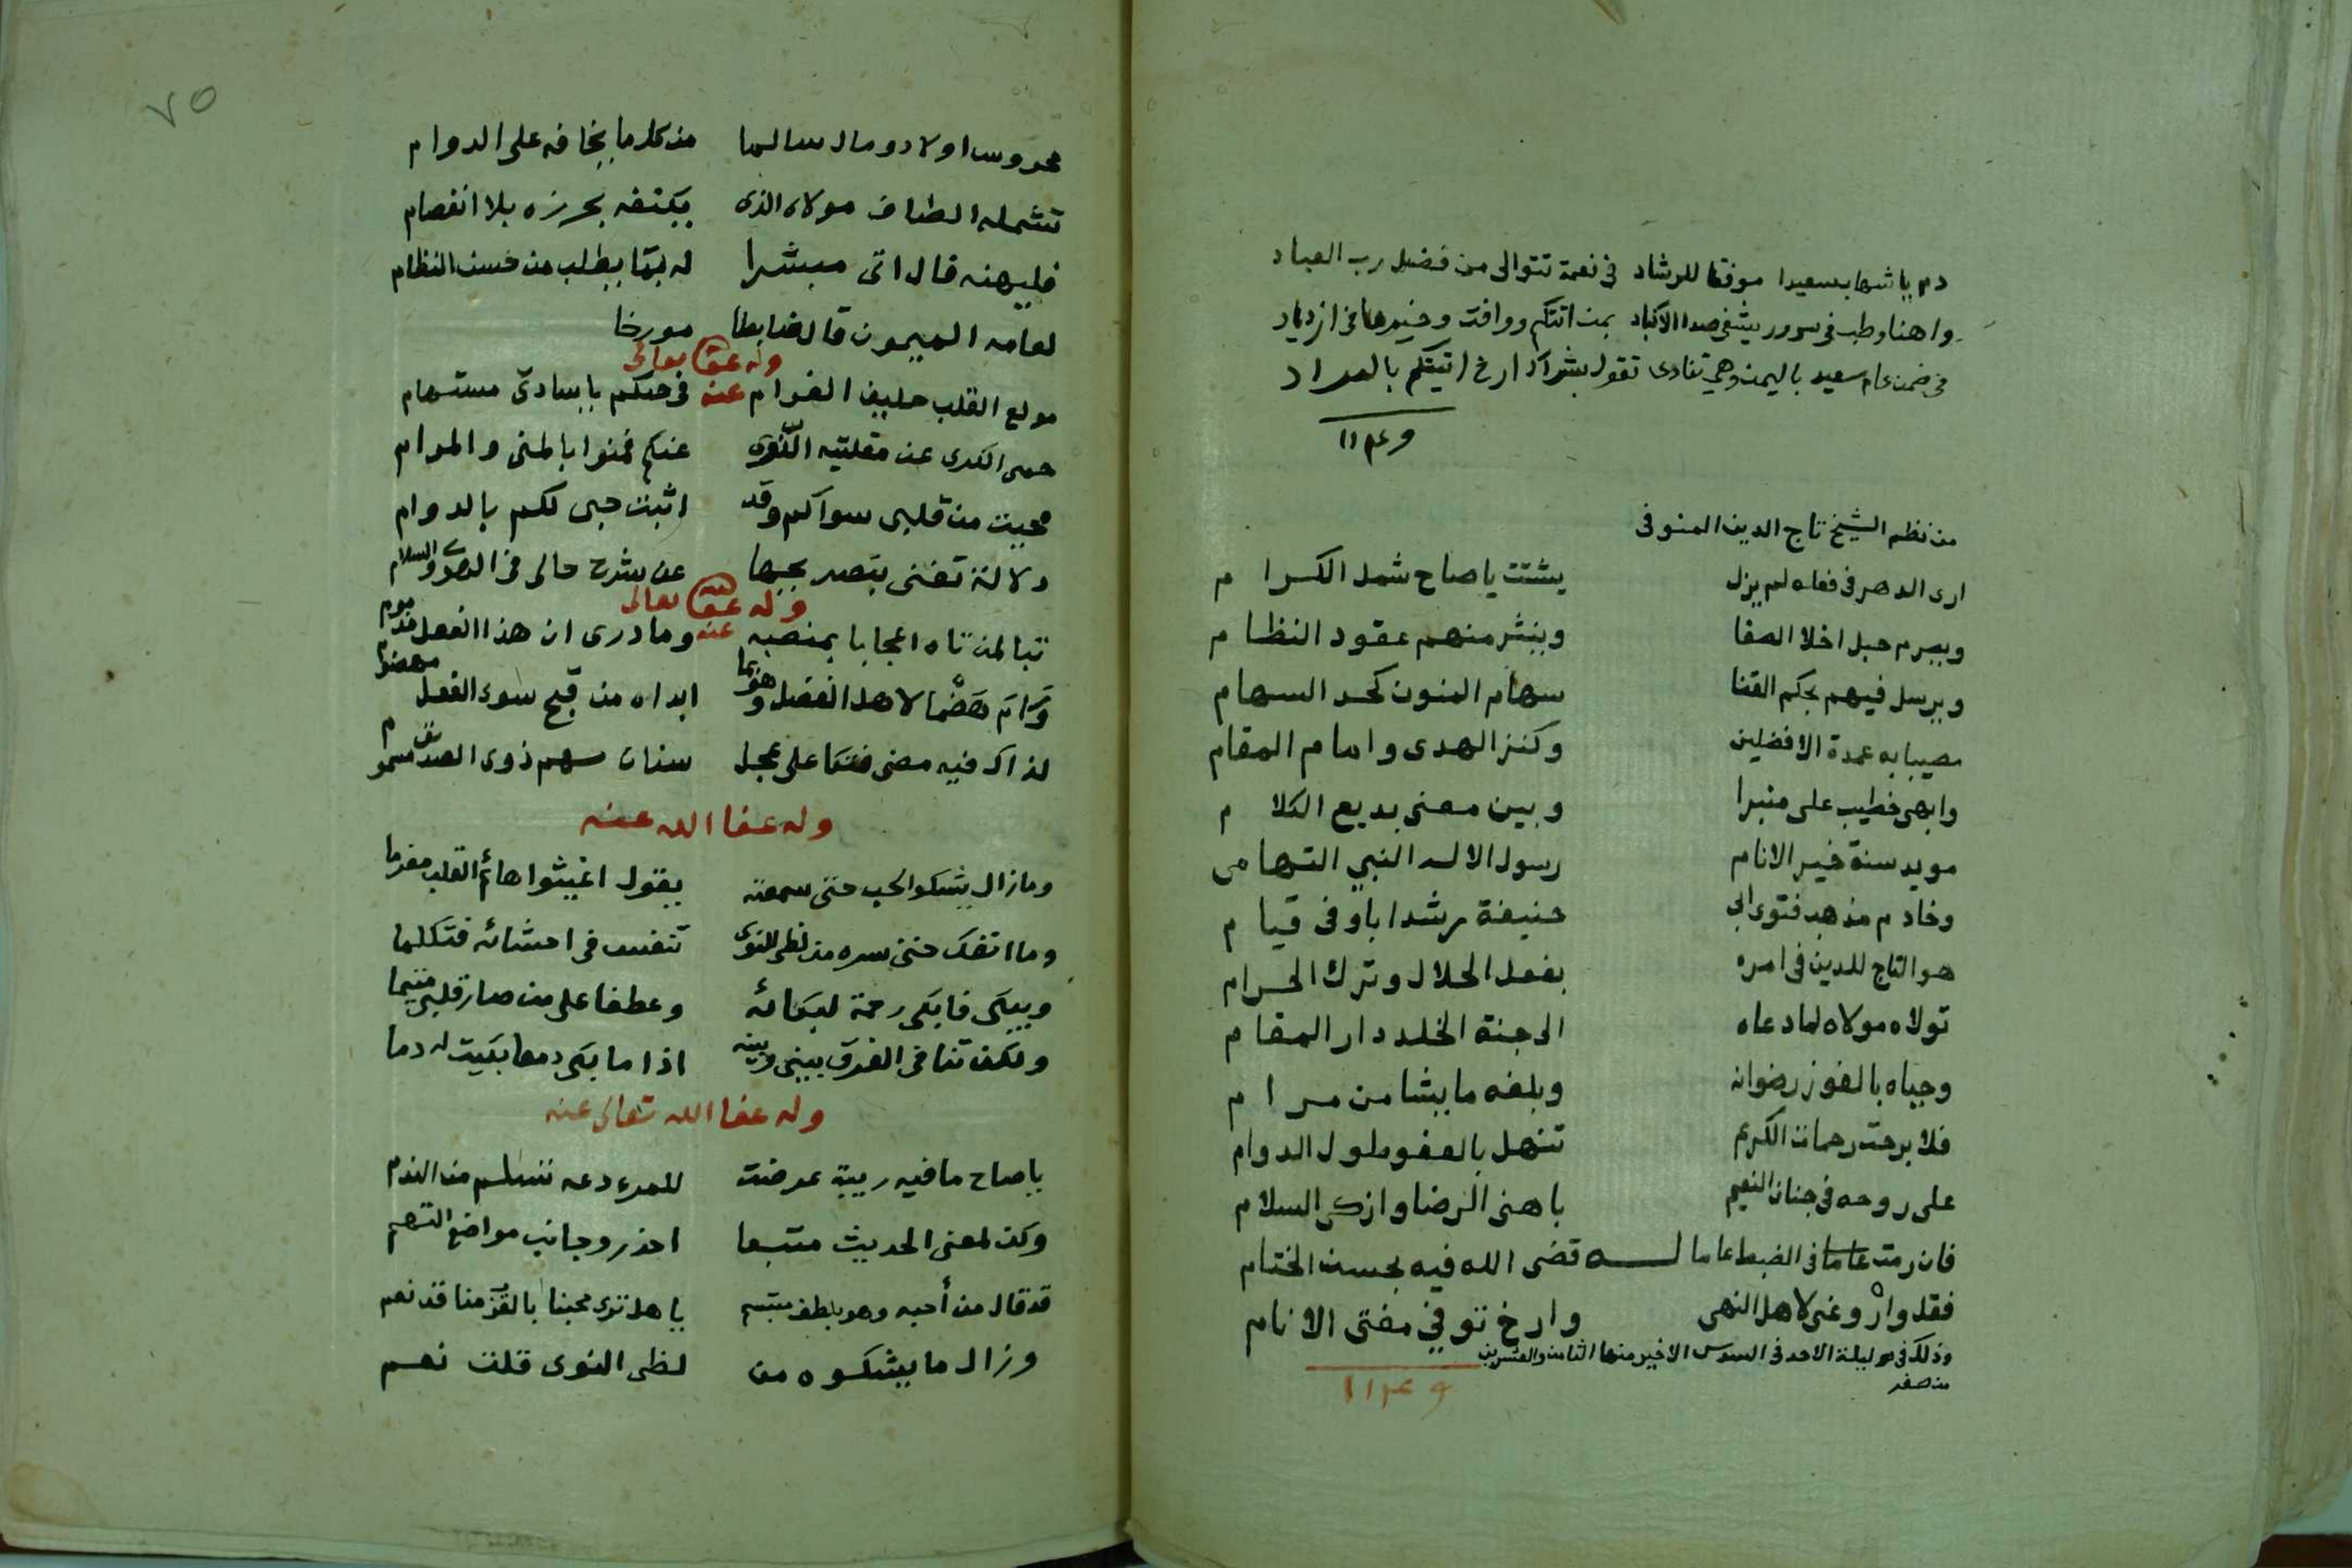 دم يا شهاب سعيدا موفقا للرشاد في نعمة تتوالى من فضل رب العباد
واهنا وطب في سرور يشفي صدا الاكباد بمن اتتكم ووافت وخيرها في ازدياد
في ضمن عام سعيد باليمن وهي تنادى تقول بشراك ارخ اتيتكم بالمراد
من نظم الشيخ تاج الدين المنوفى
ارى الدهر في فعله لم يزل يشتت يا صاح شمل الكرام
ويصرم حبل اخلا الصفا وينثر منهم عقود النظام
ويرسل فيهم بحكم القضا سهام المنون كحد السهام
مصيبا به عمدة الافضلين وكنز الهدى وامام المقام
وابهى خطيب على منبرا وبين معنى بديع الكلام
مويد سنة خير الانام رسول الاله النبي التهامى
وخادم مذهب فتوى ابى حنيفة رشدا باوفى قيام
هو التاج للدين في امره بفعل الحلال وترك الحرام
تولاه مولاه لما دعاه الى جنة الخلد دار المقام
وحياه بالفوز رضوانه وبلغه ما يشا من مرام
فلا برحت رحمات الكريم تنهل بالعفو طول الدوام
على روحه في جنان النعيم باهنى الرضا وازكى السلام
فان رمت عاما في الضبط عاما له قضى الله فيه بحسن الختام
فقد وارو عنى لاهل النهى وارخ توفي مفتى الانام
وذلك في ليلة الاحد في السدس الاخير منها الثامن والعشرين
من صفر
٧٥
محروس اولاد ومال سالما من كل ما يخافه على الدوام
تشمله الطاف مولاه الذى يكنفه بحرزه بلا انفصام
فليهنه فال اتى مبشرا له بما يطلب من حسن النظام
لعامه الميمون قال ضابطا مورخا
وله عفا الله تعالى عنه
مولع القلب حليف الغرام في حبكم يا سادتي مستهام
حمى الكرى عن مقلتيه النوى عنكم فمنوا بالمنى والمرام
محيت من قلبى سواكم وقد اثبت حبى لكم بالدوام
دلالة تغنى بتصريحها عن شرح حالى في الهوى والسلام
وله عفا الله تعالى عنه
تبا لمن تاه اعجابا بمنصبه وما درى ان هذا الفعل مذموم
ورام هضما لاهل الفضل وهو بما ابداه من قبح سوء الفعل مهضوم
لذاك فيه مضى حتما على عجل سنان سهم ذوى الصدق مسموم
وله عفا الله عنه
وما زال يشكو الحب حتى سمعته يقول اغيثوا هائم القلب مغرما
وما انفك حتى سره من لظى النوى تنفس في احشائه فتكلما
ويبكى فابكى رحمة لبكائه وعطفا على من صار قلبى متيما
ولكن تنافى الفرق بينى وبينه اذا ما بكى دمعا بكيت له دما
وله عفا الله تعالى عنه
يا صاح ما فيه ريبة عرضت للمرء دعه تسلم من الندم
وكن لمعنى الحديث متبعا احذر وجانب مواضع التهم
قد قال من أحبه وهو بلطف مبتسم يا هل ترى محبنا بالقرب منا قد نعم
وزال ما يشكوه من لظى النوى قلت نعم